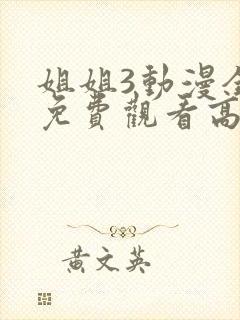 姐姐3動漫
免費觀看高
黃文英